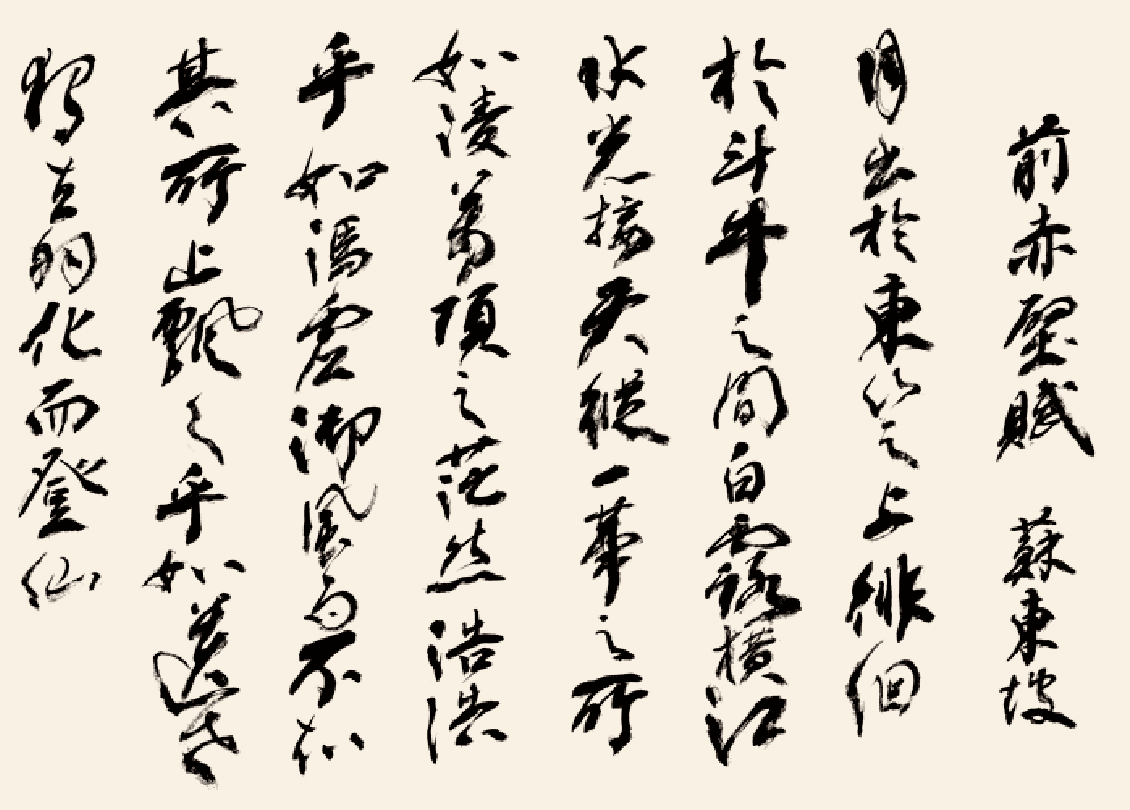 前赤壁賦 蘇東坡
月出於東山之上徘徊
於斗牛之間白露橫江
水光接天縱一葦之所
如淩萬頃之茫然浩浩
乎如馮虛御風而不知
其所止飄々乎如遺世
獨立羽化而登仙